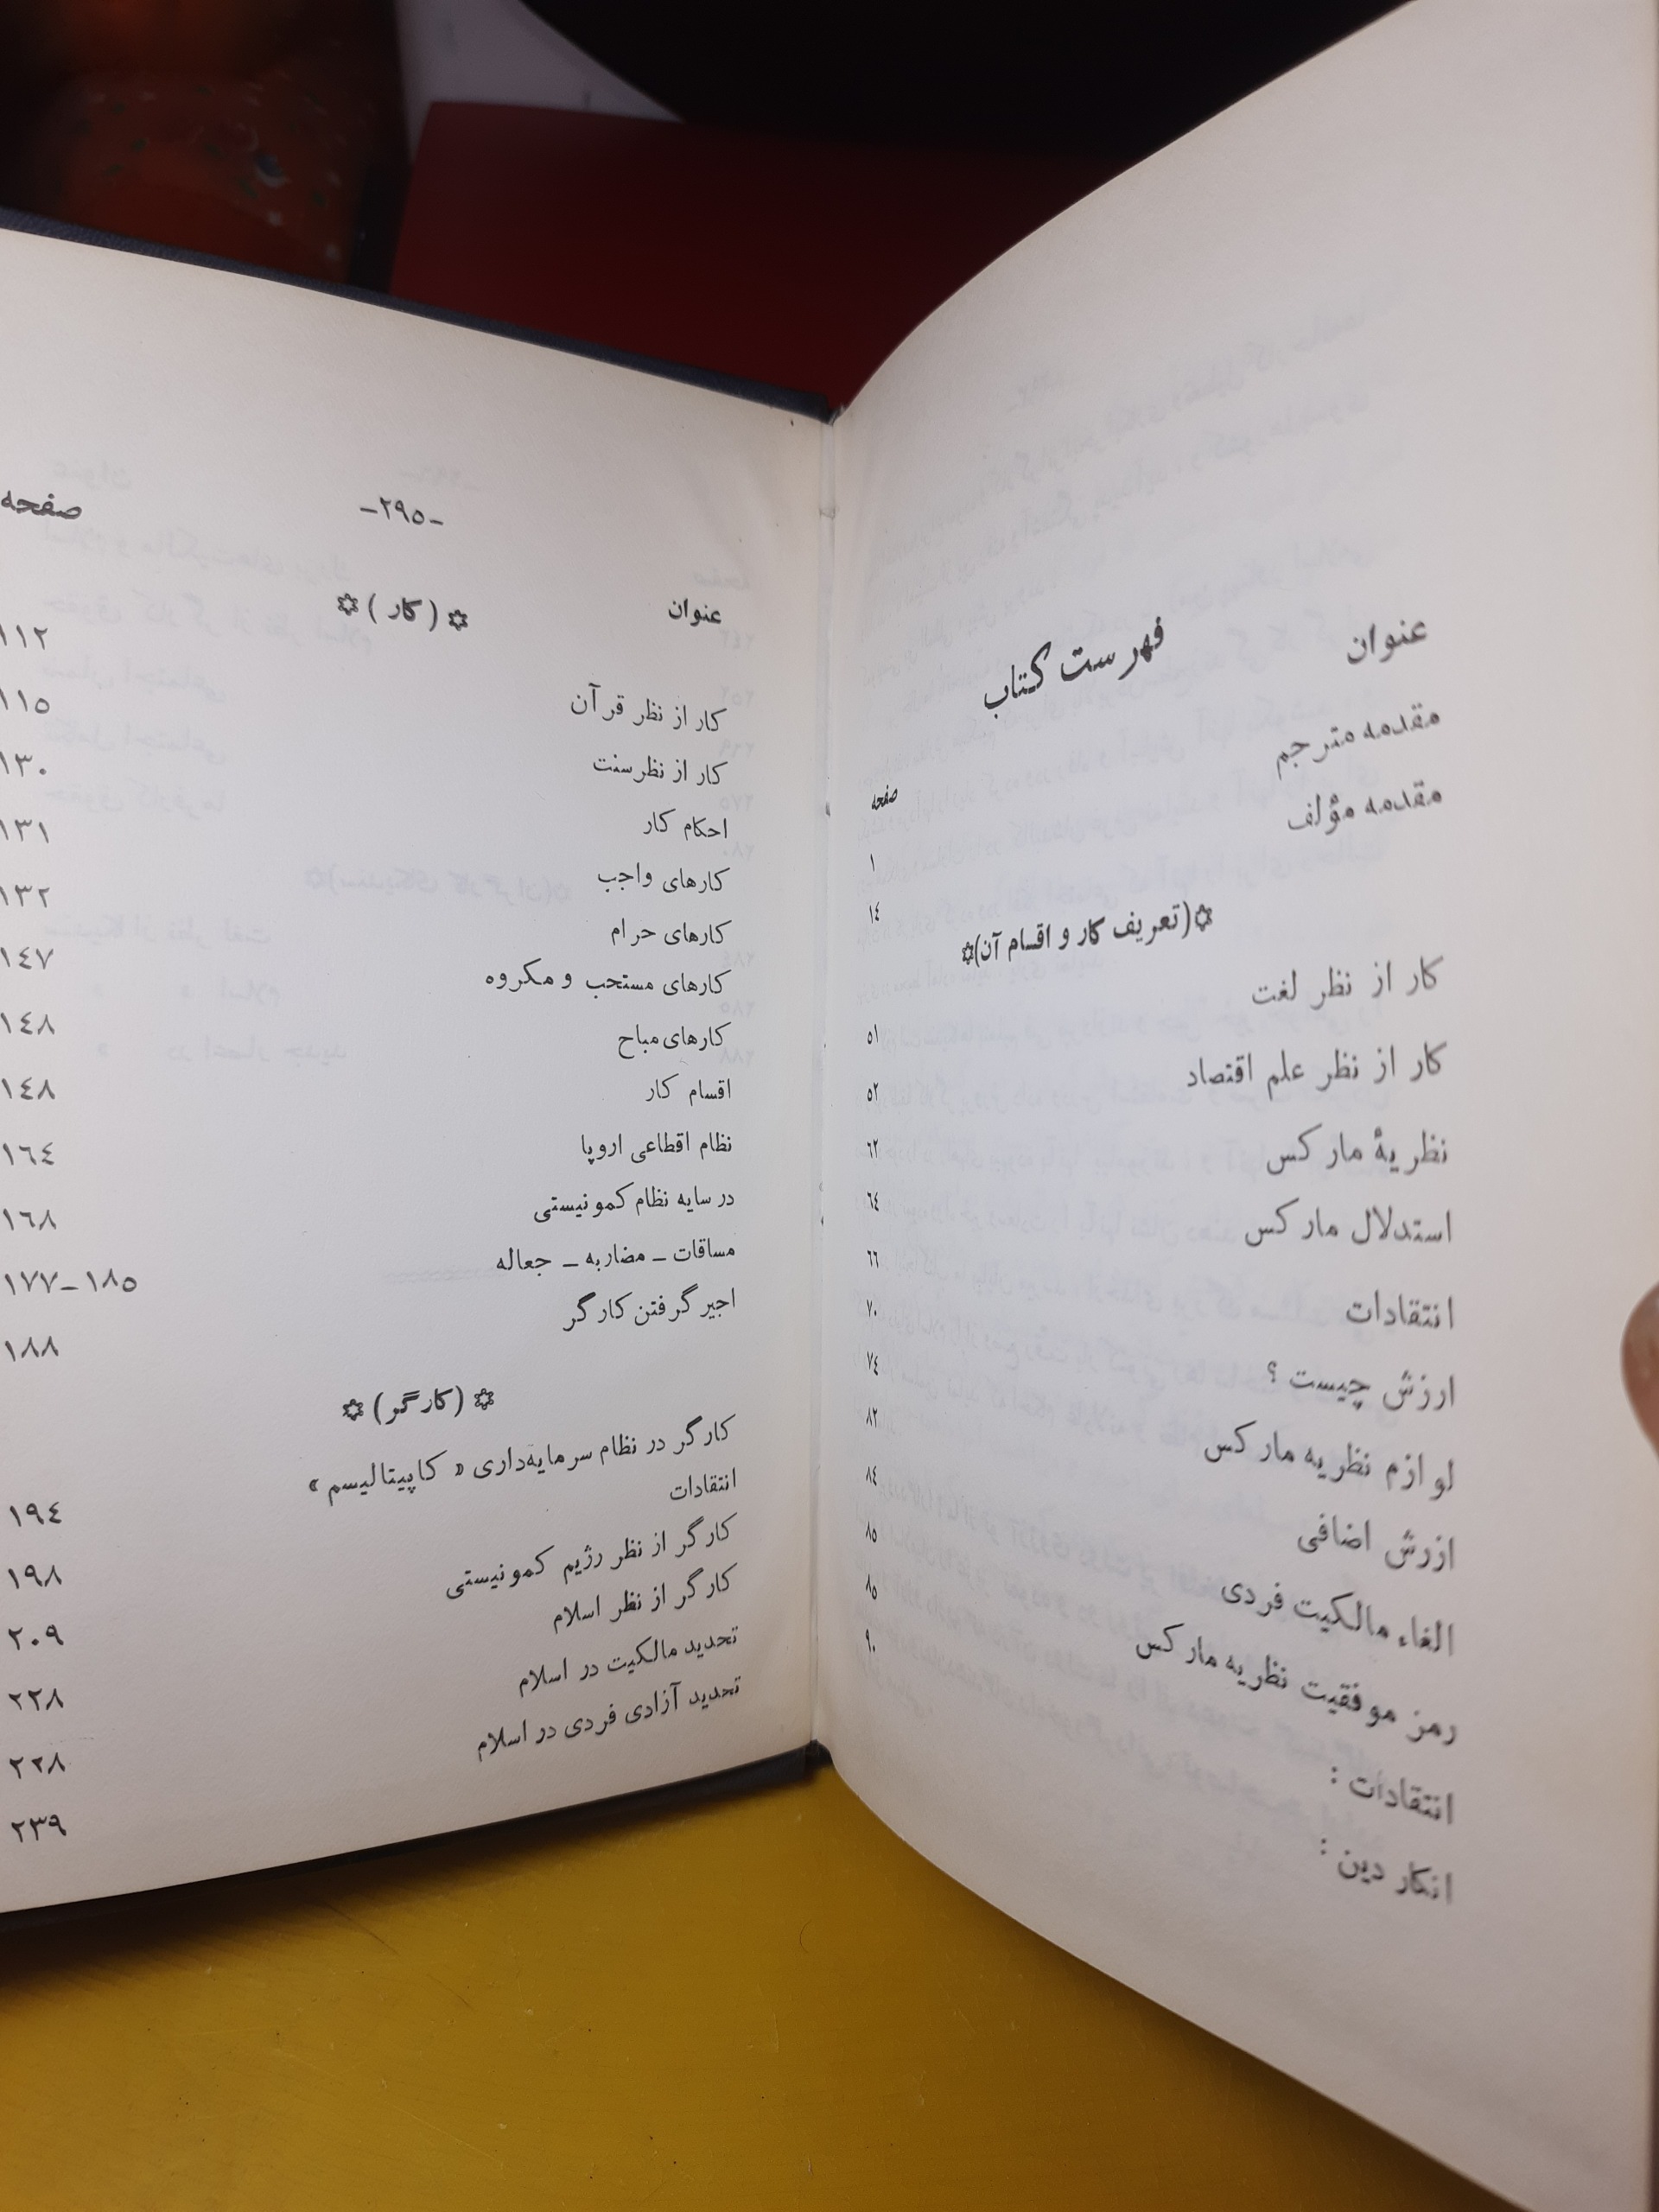 فهرست کتاب
عنوان
صفحه
مقدمه مترجم ۱
مقدمه مؤلف ۱٤
✡(تعریف کار و اقسام آن)✡
کار از نظر لغت ۵۱
کار از نظر علم اقتصاد ۵۲
نظریهٔ مارکس ٦۲
استدلال مارکس ٦٤
انتقادات ٦٦
ارزش چیست ؟ ۷۰
لوازم نظریه مارکس ۷٤
ازرش اضافی ۸۲
الغاء مالکیت فردی ۸٤
رمز موفقیت نظریه مارکس ۸۵
انتقادات : ۸۵
انکار دین : ۹۰
-۲۹۵-
عنوان صفحه
✡ ( کار ) ✡
کار از نظر قرآن ۱۱۲
کار از نظر سنت ۱۱۵
احکام کار ۱۳۰
کارهای واجب ۱۳۱
کارهای حرام ۱۳۲
کارهای مستحب و مکروه ۱٤۷
کارهای مباح ۱٤۸
اقسام کار ۱٤۸
نظام اقطاعی اروپا ۱٦٤
در سایه نظام کمونیستی ۱٦۸
مساقات - مضاربه - جعاله ۱۷۷-۱۸۵
اجیر گرفتن کارگر ۱۸۸
✡ ( کارگر ) ✡
کارگر در نظام سرمایه‌داری « کاپیتالیسم » ۱۹٤
انتقادات ۱۹۸
کارگر از نظر رژیم کمونیستی ۲۰۹
کارگر از نظر اسلام ۲۲۸
تحدید مالکیت در اسلام ۲۲۸
تحدید آزادی فردی در اسلام ۲۳۹